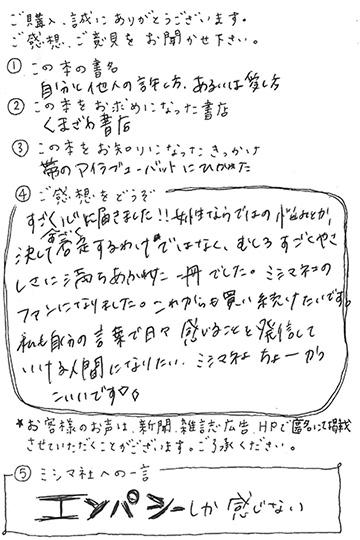 ご購入、誠にありがとうございます。
ご感想、ご意見を お聞かせ下さい。
① この本の書名
自分と他人の許し方、あるいは愛し方
② この本をお求めになった書店
くまざわ書店
③ この本をお知りになったきっかけ
帯のアイラブユーバットにひかれた
④ ご感想をどうぞ
すごく心に届きました!!女性ならではの悩みとか
決して否定するわけではなく、むしろすごくやさ
しさに満ちあふれた一冊でした。ミシマネコの
ファンになりました。これからも買い続けたいです。
私も自分の言葉で日々感じることを発信して
いける人間になりたい。ミシマネコちょーかっ
こいいです♡。
*お客様のお声は、新聞、雑誌広告、HPで匿名にて掲載
させていただくことがございます。ご了承ください。
⑤ ミシマ社への一言
エンパシーしか感じない